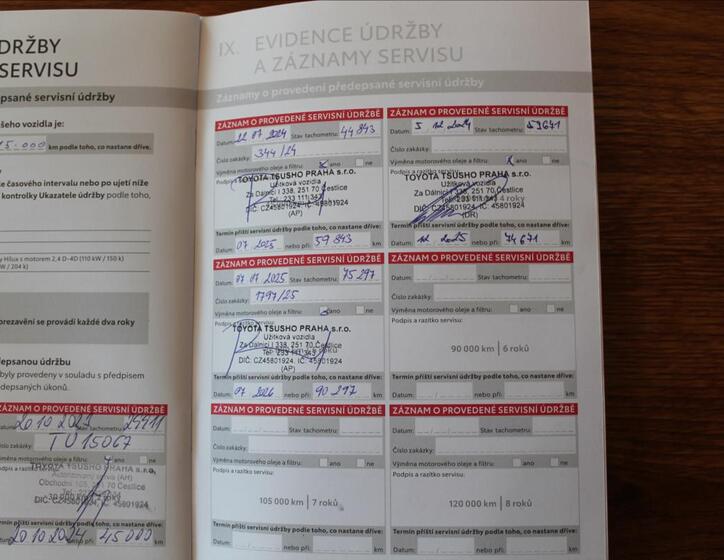 DRŽBY
SERVISU
psané servisní údržby
ašeho vozidla je:
15.000 km podle toho, co nastane dříve.
časového intervalu nebo po ujetí níže
kontrolky Ukazatele údržby podle toho,
y Hilux s motorem 2,4 D-4D (110 kW / 150 k)
W / 204 k)
prezavění se provádí každé dva roky
depsanou údržbu
byly provedeny v souladu s předpisem
depsaných úkonů.
ZÁZNAM O PROVEDENÉ SERVISNÍ ÚDRŽBĚ
20 10 Stav tachometru:
zakázky: TU 15067
měna motorového oleje a filtru: ano ne
Podpis a razítko
TOYOTA TSUSHO PRAHA s.r.o.
Obchodní 105, 251 70 Čestlice
DIČ: CZ45801924, IČ: 45801924
Termín příští servisní údržby podle toho, co nastane dříve:
20 10 2024 při: 45 000 km
IX. EVIDENCE ÚDRŽBY
A ZÁZNAMY SERVISU
Záznamy o provedení předepsané servisní údržby
ZÁZNAM O PROVEDENÉ SERVISNÍ ÚDRŽBĚ
Datum: 22 07 2024 Stav tachometru: 44 843
Číslo zakázky: 344/24
Výměna motorového oleje a filtru: x ano ne
Podpis a
TOYOTA TSUSHO PRAHA s.r.o.
Užitková vozidla
Za Dálnicí I 338, 251 70 Čestlice
Tel: 233 111 343
DIČ: CZ45801924, IČ: 45801924
(AP)
Termín příští servisní údržby podle toho, co nastane dříve:
Datum: 07 2025 nebo při: 59 843 km
ZÁZNAM O PROVEDENÉ SERVISNÍ ÚDRŽBĚ
Datum: 5 12 2024 Stav tachometru: 59671
Číslo zakázky:
Výměna motorového oleje a filtru: x ano ne
TOYOTA TSUSHO PRAHA s.r.o.
Užitková vozidla
Za Dálnicí I 338, 251 70 Čestlice
4 roky
DIČ: CZ45801924, IČ: 45801924
(DR)
Termín příští servisní údržby podle toho, co nastane dříve:
Datum: 12 2025 nebo při: 74 671 km
ZÁZNAM O PROVEDENÉ SERVISNÍ ÚDRŽBĚ
Datum: 07 07 2025 Stav tachometru: 75 297
Číslo zakázky: 1797/25
Výměna motorového oleje a filtru: x ano ne
Podpis a razítko servisu:
TOYOTA TSUSHO PRAHA s.r.o.
Užitková vozidla
Za Dálnicí I 338, 251 70 Čestlice
Tel: 233 111 343
DIČ: CZ45801924, IČ: 45801924
(AP)
Termín příští servisní údržby podle toho, co nastane dříve:
Datum: 07 2026 nebo při: 90 297 km
ZÁZNAM O PROVEDENÉ SERVISNÍ ÚDRŽBĚ
Datum: Stav tachometru:
Číslo zakázky:
Výměna motorového oleje a filtru: ano ne
Podpis a razítko servisu:
90 000 km | 6 roků
Termín příští servisní údržby podle toho, co nastane dříve:
Datum: nebo při: km
ZÁZNAM O PROVEDENÉ SERVISNÍ ÚDRŽBĚ
Datum: Stav tachometru:
Číslo zakázky:
Výměna motorového oleje a filtru: ano ne
Podpis a razítko servisu:
105 000 km | 7 roků
Termín příští servisní údržby podle toho, co nastane dříve:
Datum: nebo při: km
ZÁZNAM O PROVEDENÉ SERVISNÍ ÚDRŽBĚ
Datum: Stav tachometru:
Číslo zakázky:
Výměna motorového oleje a filtru: ano ne
Podpis a razítko servisu:
120 000 km | 8 roků
Termín příští servisní údržby podle toho, co nastane dříve:
Datum: nebo při: km